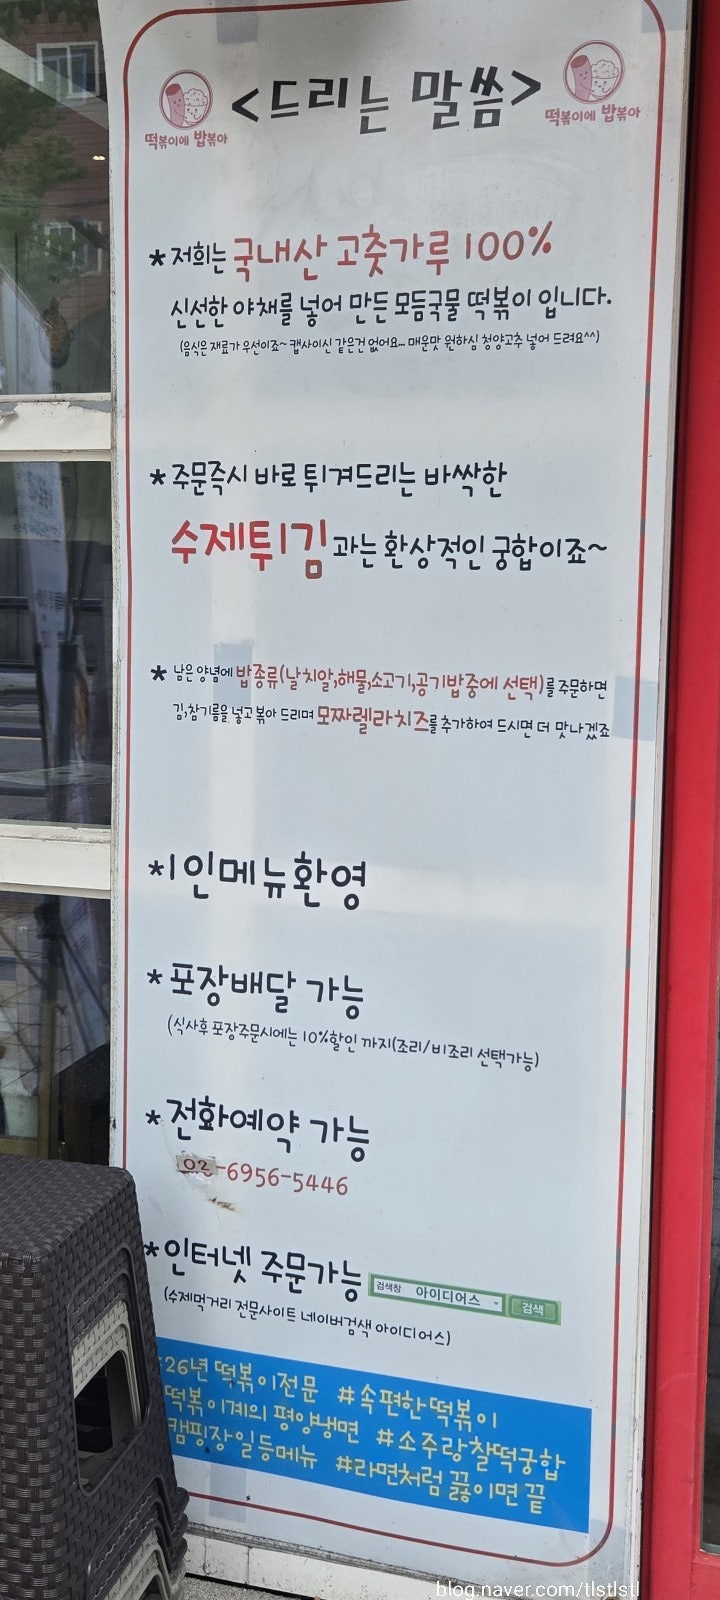 <드리는 말씀>
떡볶이에 밥볶아
떡볶이에 밥볶아
*저희는 국내산 고춧가루 100%
신선한 야채를 넣어 만든 모듬국물 떡볶이 입니다.
(음식은 재료가 우선이죠~ 캡사이신 같은건 없어요... 매운맛 원하심 청양고추 넣어 드려요^^)
*주문즉시 바로 튀겨드리는 바싹한
수제튀김과는 환상적인 궁합이죠~
*남은 양념에 밥종류(날치알,해물,소고기,공기밥중에 선택)를 주문하면
김,참기름을 넣고 볶아 드리며 모짜렐라치즈를 추가하여 드시면 더 맛나겠죠
*1인메뉴환영
*포장배달 가능
(식사후 포장주문시에는 10%할인 까지(조리/비조리 선택가능)
*전화예약 가능
02-6956-5446
*인터넷 주문가능 검색창 아이디어스 검색
(수제먹거리 전문사이트 네이버검색 아이디어스)
26년 떡볶이전문 #속편한떡볶이
떡볶이계의 평양냉면 #소주랑찰떡궁합
캠핑장일등메뉴 #라면처럼 끓이면 끝
blog.naver.com/tlstlstl